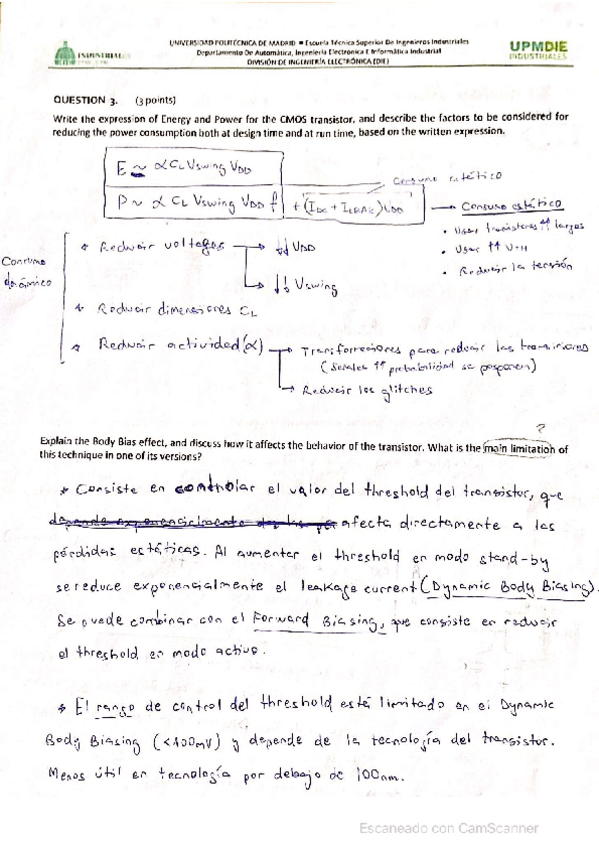 UNIVERSIDAD POLITÉCNICA DE MADRID ■ Escuela Técnica Superior De Ingenieros Industriales
Departamento De Automática, Ingeniería Electrónica E Informática Industrial
DIVISIÓN DE INGENIERÍA ELECTRÓNICA (DIE)
INDUSTRIALES
UPMDIE
INDUSTRIALES
QUESTION 3. (3 points)
Write the expression of Energy and Power for the CMOS transistor, and describe the factors to be considered for
reducing the power consumption both at design time and at run time, based on the written expression.
E ~ αCL VSwing VDD
Consumo estático
P ~ α CL VSwing VDD f + (IDC + ILEAK) VDD → Consumo estático
• Usar transistores ↑↑ largos
• Usar ↑↑ VTH
• Reducir la tensión
Consumo dinámico
* Reducir voltages → ↓↓ VDD
↓↓ VSwing
* Reducir dimensiones CL
* Reducir actividad (α) → Transformaciones para reducir las transiciones
(señales ↑↑ probabilidad se posponen)
→ Reducir los glitches
?
Explain the Body Bias effect, and discuss how it affects the behavior of the transistor. What is the main limitation of
this technique in one of its versions?
* Consiste en controlar el valor del threshold del transistor, que
afecta directamente a las
pérdidas estáticas. Al aumentar el threshold en modo stand-by
se reduce exponencialmente el leakage current (Dynamic Body Biasing).
Se puede combinar con el Forward Biasing, que consiste en reducir
el threshold en modo activo.
* El rango de control del threshold está limitado en el Dynamic
Body Biasing (<400mV) y depende de la tecnología del transistor.
Menos útil en tecnología por debajo de 100nm.
Escaneado con CamScanner